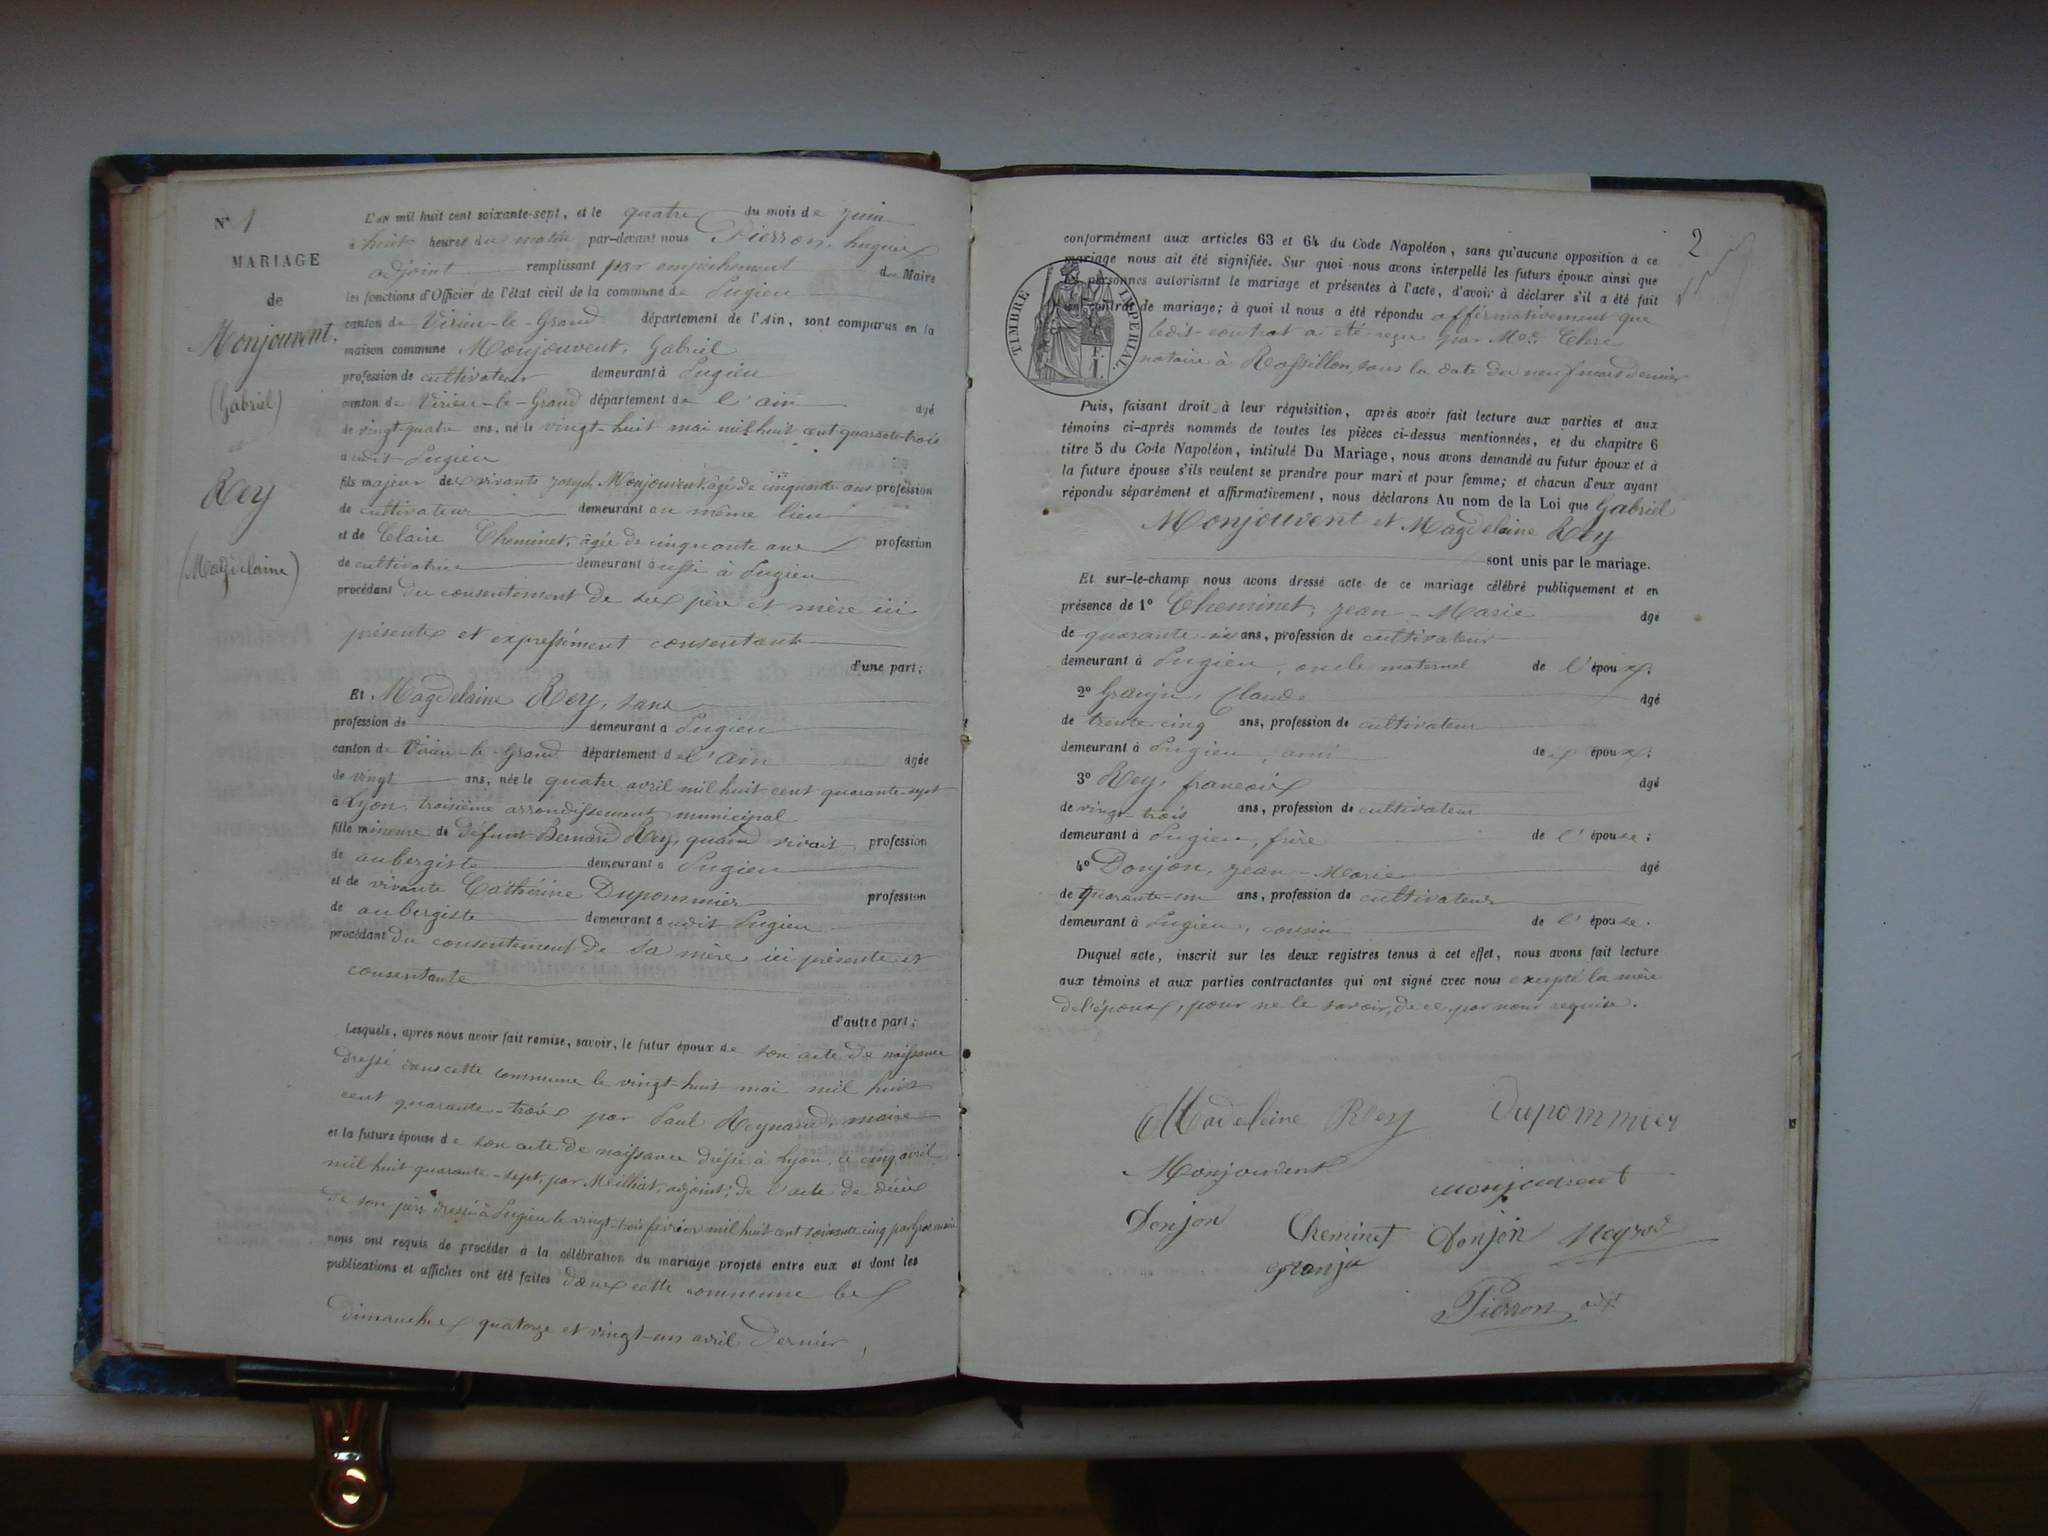 N° 1
MARIAGE
de
Monjouvent,
(Gabriel)
et
Rey
(Magdelaine)
L'an mil huit cent soixante-sept, et le quatre du mois de juin
à huit heures du matin par-devant nous Pierron, hugues
adjoint remplissant par empêchement du Maire
les fonctions d'Officier de l'état civil de la commune de Pugieu
canton de Virieu-le-Grand département de l'Ain, sont comparus en la
maison commune Monjouvent, Gabriel
profession de cultivateur demeurant à Pugieu
canton de Virieu-le-Grand département de l'ain âgé
de vingt-quatre ans, né le vingt-huit mai mil huit cent quarante-trois
audit Pugieu
fils majeur des vivants joseph Monjouvent, âgé de cinquante ans profession
de cultivateur demeurant au même lieu
et de Claire Cheminet, âgée de cinquante ans profession
de cultivatrice demeurant aussi à Pugieu
procédant du consentement de ses père et mère ici
présents et expressément consentants
d'une part;
Et Magdelaine Rey, sans
profession de demeurant à Pugieu
canton de Virieu-le-Grand département de l'ain âgée
de vingt ans, née le quatre avril mil huit cent quarante-sept
à Lyon, troisième arrondissement municipal
fille mineure de défunt Bernard Rey, quand vivait profession
de aubergiste demeurant à Pugieu
et de vivante Cathérine Dupommier profession
de aubergiste demeurant audit Pugieu
procédant du consentement de sa mère, ici présente et
consentante
d'autre part;
Lesquels, après nous avoir fait remise, savoir, le futur époux de son acte de naissance
dressé dans cette commune le vingt-huit mai mil huit
cent quarante-trois par Paul Reynaud, maire
et la future épouse de son acte de naissance dressé à Lyon, le cinq avril
mil huit quarante-sept, par Meilhat, adjoint; de l'acte de décès
de son père dressé à Pugieu le vingt-trois février mil huit cent soixante cinq par
nous ont requis de procéder à la célébration du mariage projeté entre eux et dont les
publications et affiches ont été faites dans cette commune les
dimanches quatorze et vingt-un avril dernier,
2
conformément aux articles 63 et 64 du Code Napoléon, sans qu'aucune opposition à ce
mariage nous ait été signifiée. Sur quoi nous avons interpellé les futurs époux ainsi que
les personnes autorisant le mariage et présentes à l'acte, d'avoir à déclarer s'il a été fait
un contrat de mariage; à quoi il nous a été répondu affirmativement que
TIMBRE IMPERIAL.
1 F.
ledit contrat a été reçu par Me Clerc
notaire à Rossillon, sous la date du neuf mars dernier
Puis, faisant droit à leur réquisition, après avoir fait lecture aux parties et aux
témoins ci-après nommés de toutes les pièces ci-dessus mentionnées, et du chapitre 6
titre 5 du Code Napoléon, intitulé Du Mariage, nous avons demandé au futur époux et à
la future épouse s'ils veulent se prendre pour mari et pour femme; et chacun d'eux ayant
répondu séparément et affirmativement, nous déclarons Au nom de la Loi que Gabriel
Monjouvent et Magdelaine Rey
sont unis par le mariage.
Et sur-le-champ nous avons dressé acte de ce mariage célébré publiquement et en
présence de 1° Cheminet, jean-Marie âgé
de quarante-six ans, profession de cultivateur
demeurant à Pugieu, oncle maternel de l'époux;
2° Granju, Claude âgé
de trente-cinq ans, profession de cultivateur
demeurant à Pugieu, ami des époux;
3° Rey, francois âgé
de vingt-trois ans, profession de cultivateur
demeurant à Pugieu, frère de l'épouse;
4° Donjon, jean-Marie âgé
de quarante-un ans, profession de cultivateur
demeurant à Pugieu, cousin de l'épouse.
Duquel acte, inscrit sur les deux registres tenus à cet effet, nous avons fait lecture
aux témoins et aux parties contractantes qui ont signé avec nous excepté la mère
de l'époux, pour ne le savoir, de ce par nous requise.
Madeleine Rey Dupommier
Monjouvent
monjouvent
Donjon Cheminet Donjon
granju
Pierron adjt